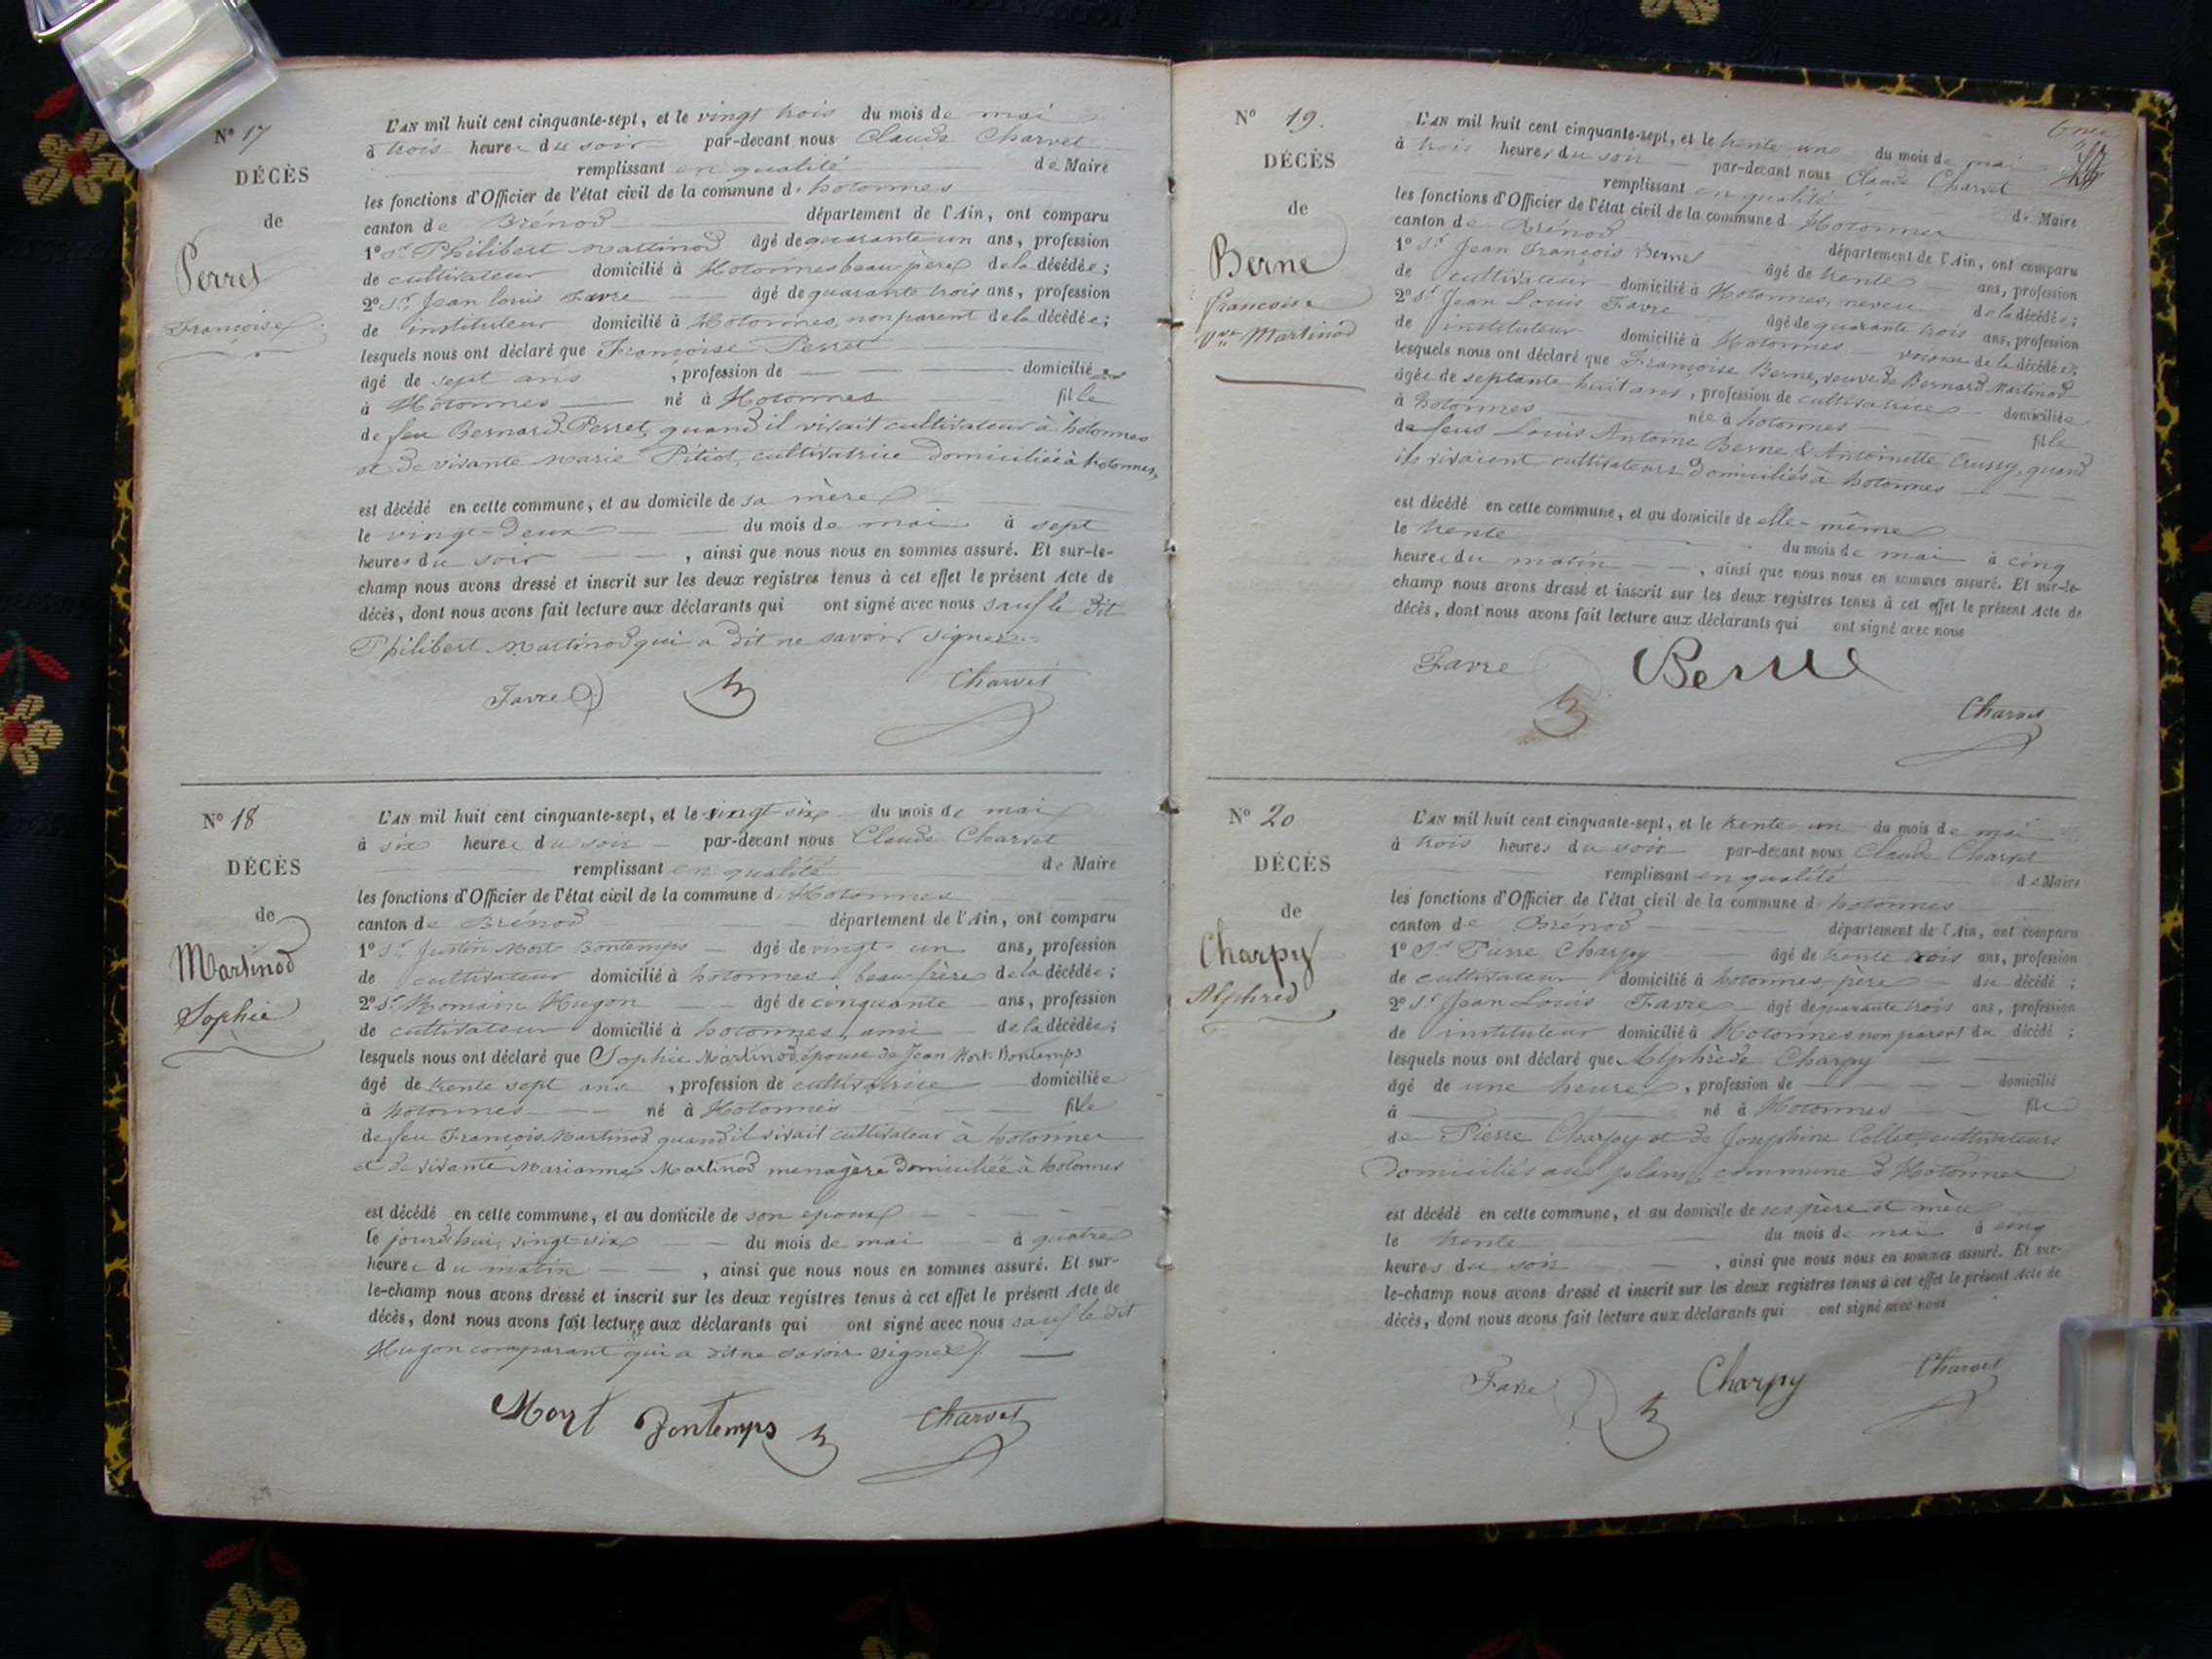 N° 17
DÉCÈS
de
Perret
Françoise
L'AN mil huit cent cinquante-sept, et le vingt trois du mois de mai
à trois heures du soir par-devant nous Claude Charvet
remplissant en qualité de Maire
les fonctions d'Officier de l'état civil de la commune d'hotonnes
canton de Brénod département de l'Ain, ont comparu
1° Sr Philibert Martinod âgé de quarante un ans, profession
de cultivateur domicilié à Hotonnes beau père de la décédée;
2° Sr Jean Louis Favre âgé de quarante trois ans, profession
de instituteur domicilié à Hotonnes, non parent de la décédée;
lesquels nous ont déclaré que Françoise Perret
âgé de sept ans , profession de domiciliée
à Hotonnes né à Hotonnes fille
de feu Bernard Perret, quand il vivait cultivateur à hotonnes
et de vivante Marie Pitiot, cultivatrice domiciliée à hotonnes,
est décédé en cette commune, et au domicile de sa mère
le vingt-deux du mois de mai à sept
heures du soir , ainsi que nous nous en sommes assuré. Et sur-le-
champ nous avons dressé et inscrit sur les deux registres tenus à cet effet le présent Acte de
décès, dont nous avons fait lecture aux déclarants qui ont signé avec nous sauf le dit
Philibert Martinod qui a dit ne savoir signer.
Favre Charvet
N° 18
DÉCÈS
de
Martinod
Sophie
L'AN mil huit cent cinquante-sept, et le vingt six du mois de mai
à six heures du soir par-devant nous Claude Charvet
remplissant en qualité de Maire
les fonctions d'Officier de l'état civil de la commune d'Hotonnes
canton de Brénod département de l'Ain, ont comparu
1° Sr Justin Mort Bontemps âgé de vingt un ans, profession
de cultivateur domicilié à hotonnes, beau frère de la décédée;
2° Sr Romain Hugon âgé de cinquante ans, profession
de cultivateur domicilié à hotonnes, ami de la décédée;
lesquels nous ont déclaré que Sophie Martinod, épouse de Jean Mort-Bontemps
âgé de trente sept ans , profession de cultivatrice domiciliée
à hotonnes né à Hotonnes fille
de feu François Martinod quand il vivait cultivateur à hotonnes
et de vivante Marianne Martinod menagère domiciliée à hotonnes
est décédé en cette commune, et au domicile de son epoux
le jourd'hui, vingt six du mois de mai à quatre
heures du matin , ainsi que nous nous en sommes assuré. Et sur-
le-champ nous avons dressé et inscrit sur les deux registres tenus à cet effet le présent Acte de
décès, dont nous avons fait lecture aux déclarants qui ont signé avec nous sauf le dit
Hugon comparant qui a dit ne savoir signer.
Mort Bontemps Charvet
N° 19.
DÉCÈS
de
Berne
Francoise
Vve Martinod
L'AN mil huit cent cinquante-sept, et le trente un du mois de mai
à trois heures du soir par-devant nous Claude Charvet
remplissant en qualité de Maire
les fonctions d'Officier de l'état civil de la commune d'Hotonnes
canton de Brénod département de l'Ain, ont comparu
1° Sr Jean François Berne âgé de trente ans, profession
de cultivateur domicilié à Hotonnes, neveu de la décédée;
2° Sr Jean Louis Favre âgé de quarante trois ans, profession
de instituteur domicilié à Hotonnes voisin de la décédée;
lesquels nous ont déclaré que Françoise Berne, veuve de Bernard Martinod
âgée de septante huit ans , profession de cultivatrice domiciliée
à hotonnes née à hotonnes fille
de feus Louis Antoine Berne & Antoinette Crussy, quand
ils vivaient cultivateurs domiciliés à hotonnes
est décédé en cette commune, et au domicile de elle-même
le trente du mois de mai à cinq
heures du matin , ainsi que nous nous en sommes assuré. Et sur-le-
champ nous avons dressé et inscrit sur les deux registres tenus à cet effet le présent Acte de
décès, dont nous avons fait lecture aux déclarants qui ont signé avec nous
Favre Berne
Charvet
N° 20
DÉCÈS
de
Charpy
Alphred
L'AN mil huit cent cinquante-sept, et le trente un du mois de mai
à trois heures du soir par-devant nous Claude Charvet
remplissant en qualité de Maire
les fonctions d'Officier de l'état civil de la commune d'hotonnes
canton de Brénod département de l'Ain, ont comparu
1° Sr Pierre Charpy âgé de trente trois ans, profession
de cultivateur domicilié à hotonnes père du décédé ;
2° Sr Jean Louis Favre âgé de quarante trois ans, profession
de instituteur domicilié à Hotonnes non parent du décédé ;
lesquels nous ont déclaré que Alphrède Charpy
âgé de une heure , profession de domicilié
à né à Hotonnes fils
de Pierre Charpy et de Josephine Collet, cultivateurs
domiciliés au plans, commune d'Hotonnes
est décédé en cette commune, et au domicile de ses père et mère
le trente du mois de mai à cinq
heures du soir , ainsi que nous nous en sommes assuré. Et sur-
le-champ nous avons dressé et inscrit sur les deux registres tenus à cet effet le présent Acte de
décès, dont nous avons fait lecture aux déclarants qui ont signé avec nous
Favre Charpy Charvet